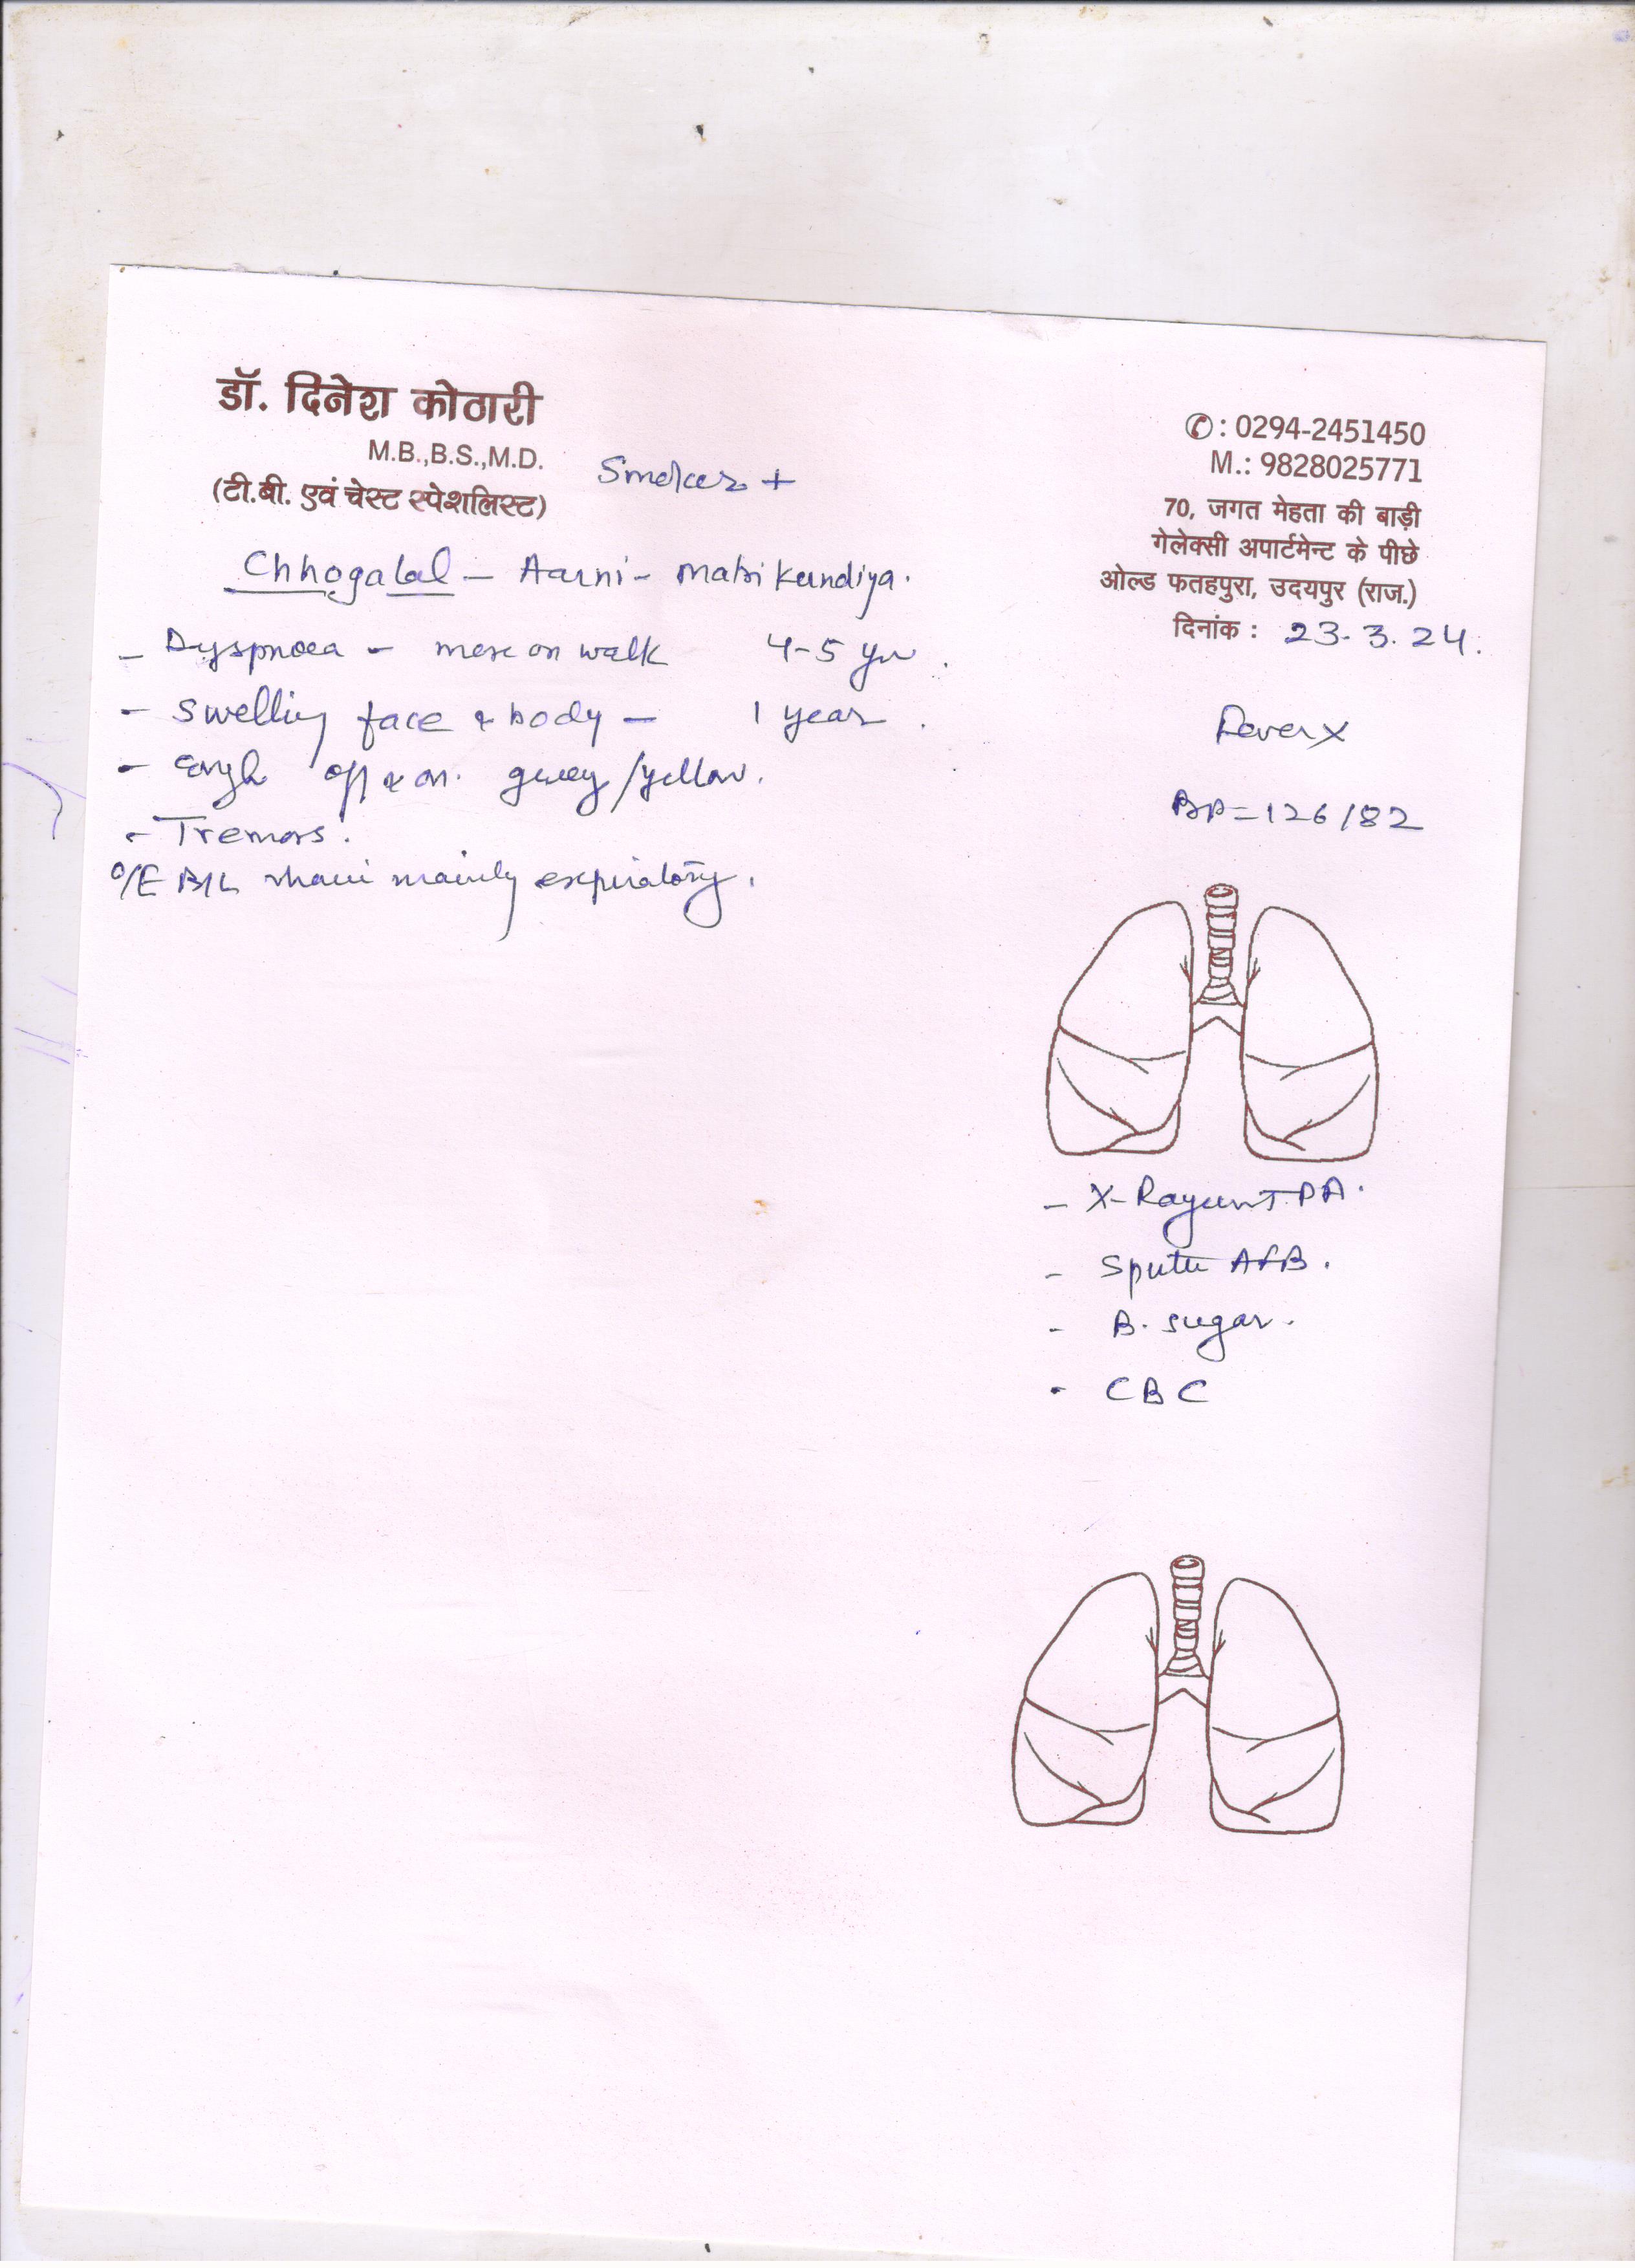 डॉ. दिनेश कोठारी
M.B.,B.S.,M.D.
(टी.बी. एवं चेस्ट स्पेशलिस्ट)
Smoker +
✆ : 0294-2451450
M.: 9828025771
70, जगत मेहता की बाड़ी
गेलेक्सी अपार्टमेन्ट के पीछे
ओल्ड फतहपुरा, उदयपुर (राज.)
दिनांक : 23.3.24.
Chhogalal - Aarni - Matri Kundiya.
- Dyspnoea - more on walk 4-5 yr.
- Swelling face & body - 1 year.
- Cough off & on. grey/yellow.
- Tremors.
O/E B/L mainly expiratory.
Fever X
BP = 126/82
- X-Ray PA.
- Sputu AFB.
- B. sugar.
- CBC